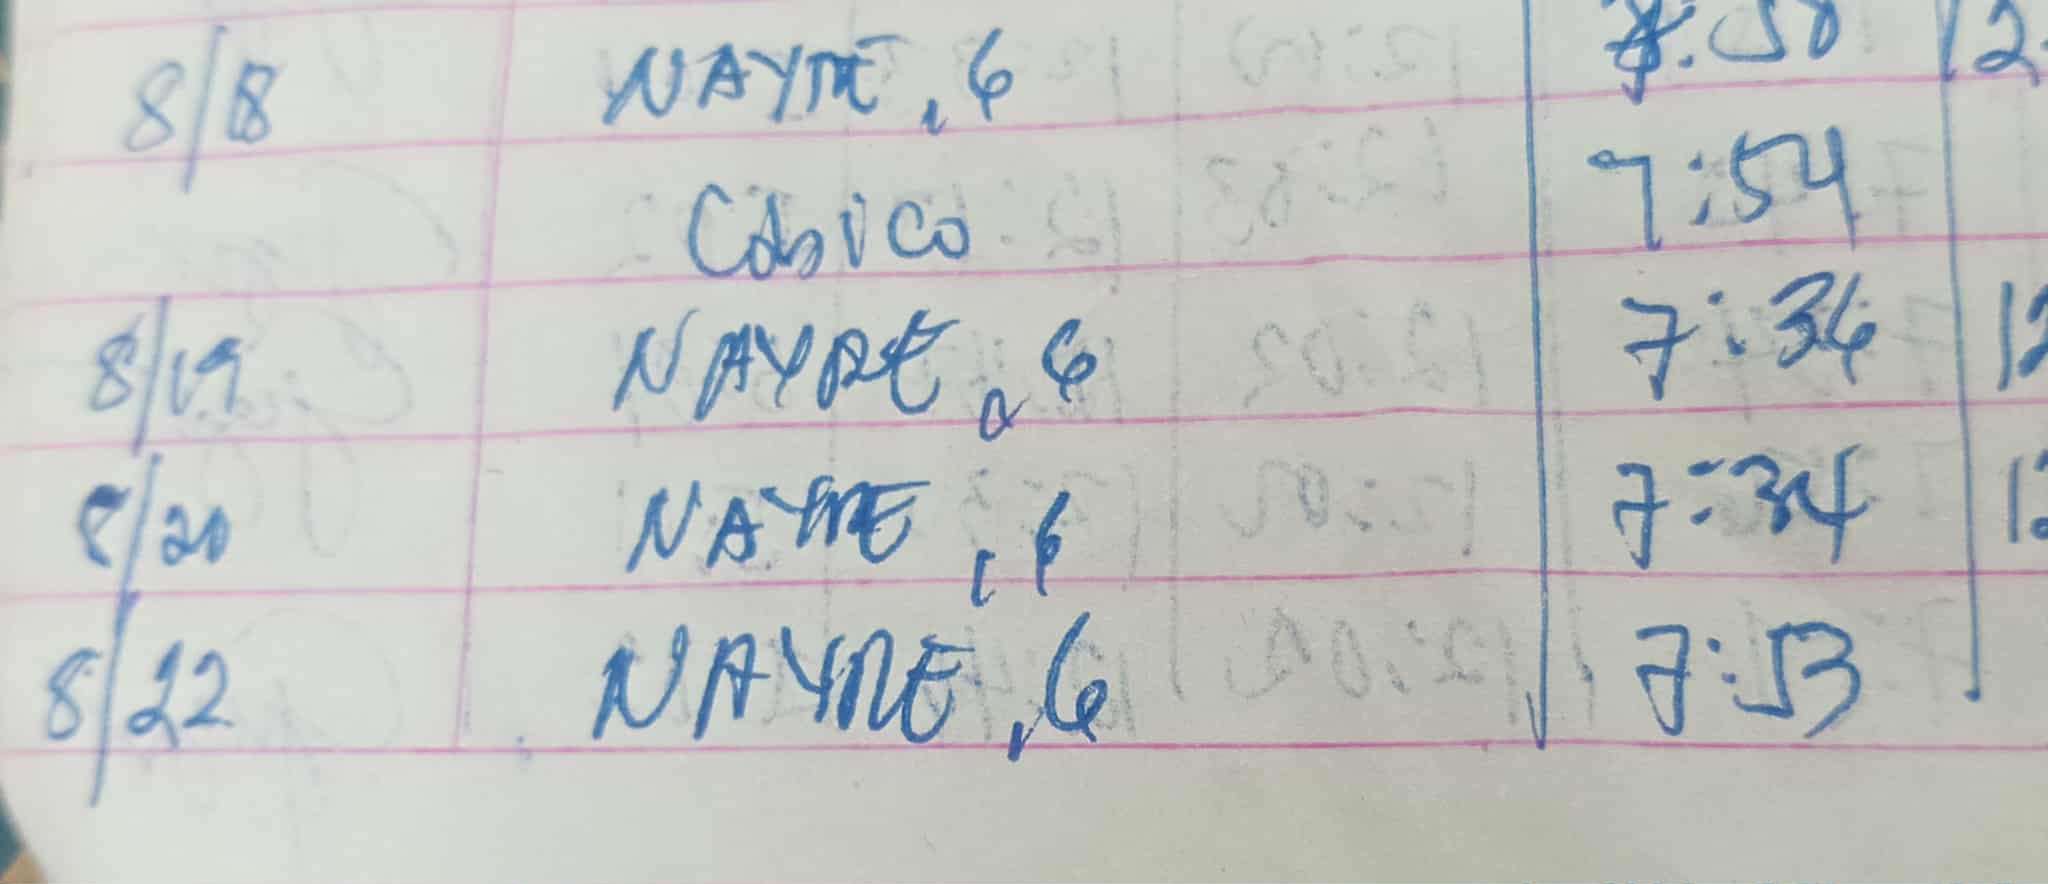 8/18 NAYRE, G 7:50 12
Cabico 7:54
8/19 NAYRE, G 7:36 12
8/20 NAYRE, G 7:34 12
8/22 NAYRE, G 7:53